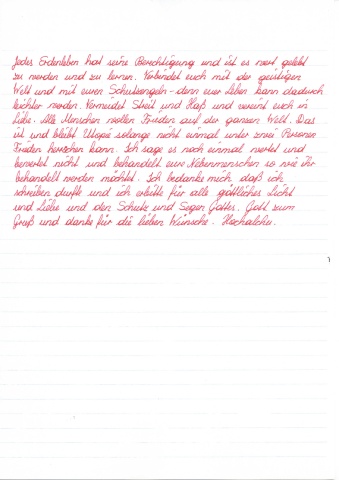 Jedes Erdenleben hat seine Berechtigung und ist es wert gelebt
zu werden und zu lernen. Verbindet euch mit der geistigen
Welt und mit euren Schutzengeln - denn euer Leben kann dadurch
leichter werden. Vermeidet Streit und Haß und vereint euch in
Liebe. Alle Menschen wollen Frieden auf der ganzen Welt. Das
ist und bleibt Utopie solange nicht einmal unter zwei Personen
Frieden herrschen kann. Ich sage es noch einmal wertet und
bewertet nicht und behandelt eure Nebenmenschen so wie ihr
behandelt werden möchtet. Ich bedanke mich daß ich
schreiben durfte und ich erbitte für alle göttliches Licht
und Liebe und den Schutz und Segen Gottes. Gott zum
Gruß und danke für die lieben Wünsche.